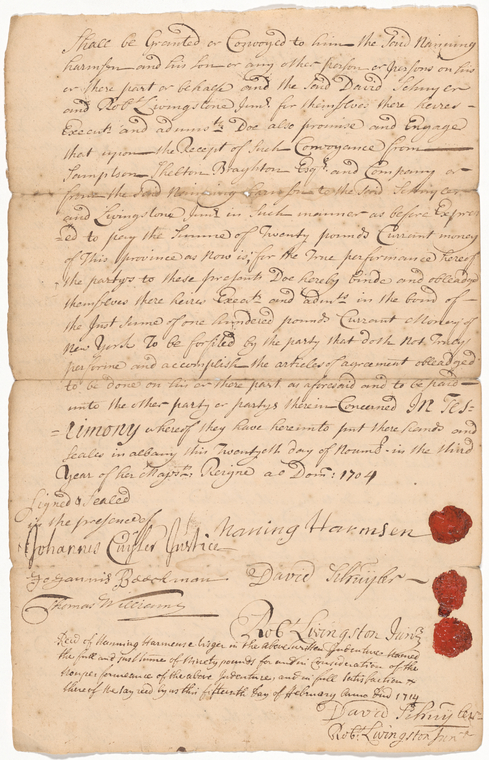 Shall be Granted or Convoyed to him the Said Nanning
harmson and his son or any other person or persons on his
or there part or behalfe and the Said David Schuyler
and Robt Livingstone Junr. for themselves there heires
Execut: and adminrs Doe also promise and Engage
that upon the Receipt of Such Conveyance from
Sampson Shelton Baughton Esqr. and Company or
from the said Nanning harmson to the Said Schuyler
and Livingstone Junr. in Such manner as before Expres
ed to pay the Summe of Twenty pounds Currant money
of This province as Now is, for the True performance hereof
the partys to these presents Doe hereby binde and obleadge
themselves there heires Execut: and admrs in the bond of
the Just Sume of one hundered pounds Currant Money of
New Yorke To be forfited by the party that doth Not Truely
performe and accomplish the articles of agreement obleadged
to be Done on his or there part as aforesaid and to be paid
unto the other party or partys therein Concerned IN Tes-
=timony whereof they have hereunto put there hands and
Seales in albany this Twentyeth day of Novemb. in the third
Year of her Majtys. Reigne ao Dom: 1704
Signed & Sealed
in the presence of
Johannis Cuyler Justice Naning Harmsen
Johannis Beeckman David Schuyler
Thomas Williams
Robt. Livingston Junr.
Recd of Nanning Harmense in the above written Indenture Named
the full and Just Sume of Ninety pounds for and in Consideration of the
Nonperformance of the above Indenture and in full Satisfaction
there of We Say recd by us this fifteenth day of February Anno Dni 1714
David Schuyler
Robt: Livingston Junr.